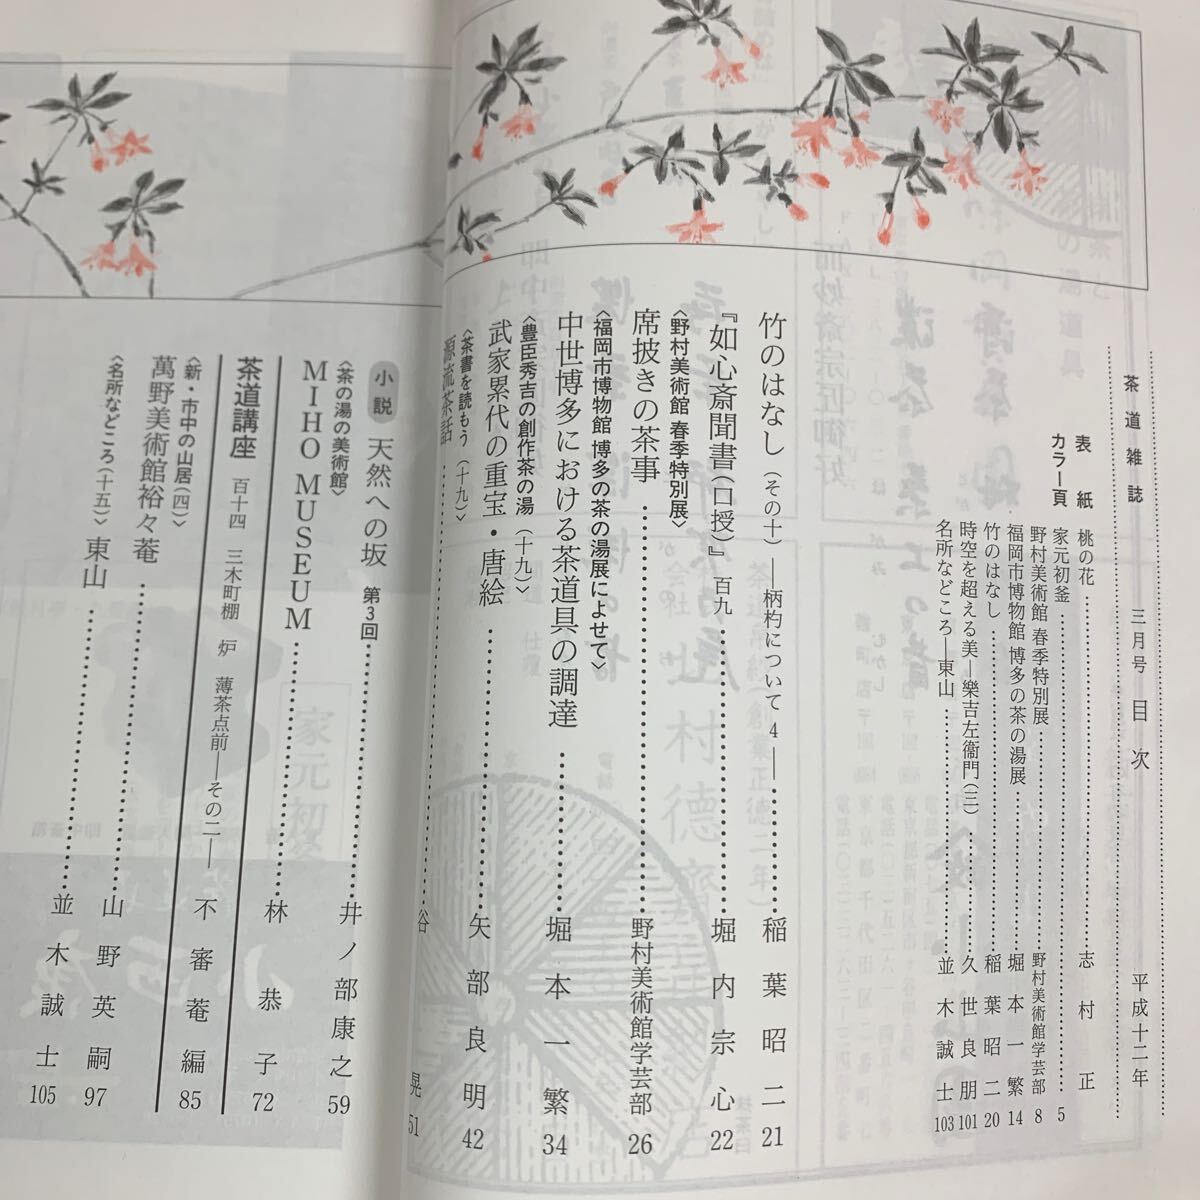 茶道雑誌　三月号　目次　平成十二年
表紙　桃の花……志村正
カラー頁　家元初釜……5
野村美術館 春季特別展……野村美術館学芸部 8
福岡市博物館 博多の茶の湯展……堀本一繁 14
竹のはなし……稲葉昭二 20
時空を超える美―樂吉左衞門（三）……久世良朋 101
名所などころ―東山……並木誠士 103
竹のはなし（その十）―柄杓について 4―……稲葉昭二 21
『如心斎聞書（口授）』百九……堀内宗心 22
〈野村美術館 春季特別展〉
席披きの茶事……野村美術館学芸部 26
〈福岡市博物館 博多の茶の湯展によせて〉
中世博多における茶道具の調達……堀本一繁 34
〈豊臣秀吉の創作茶の湯（十九）〉
武家累代の重宝・唐絵……矢部良明 42
〈茶書を読もう（十九）〉
源流茶話……谷　晃 51
小説　天然への坂　第3回……井ノ部康之 59
〈茶の湯の美術館〉
MIHO MUSEUM……林恭子 72
茶道講座　百十四　三木町棚　炉　薄茶点前―その二―　不審菴編 85
〈新・市中の山居（四）〉
萬野美術館裕々菴……山野英嗣 97
〈名所などころ（十五）〉東山……並木誠士 105